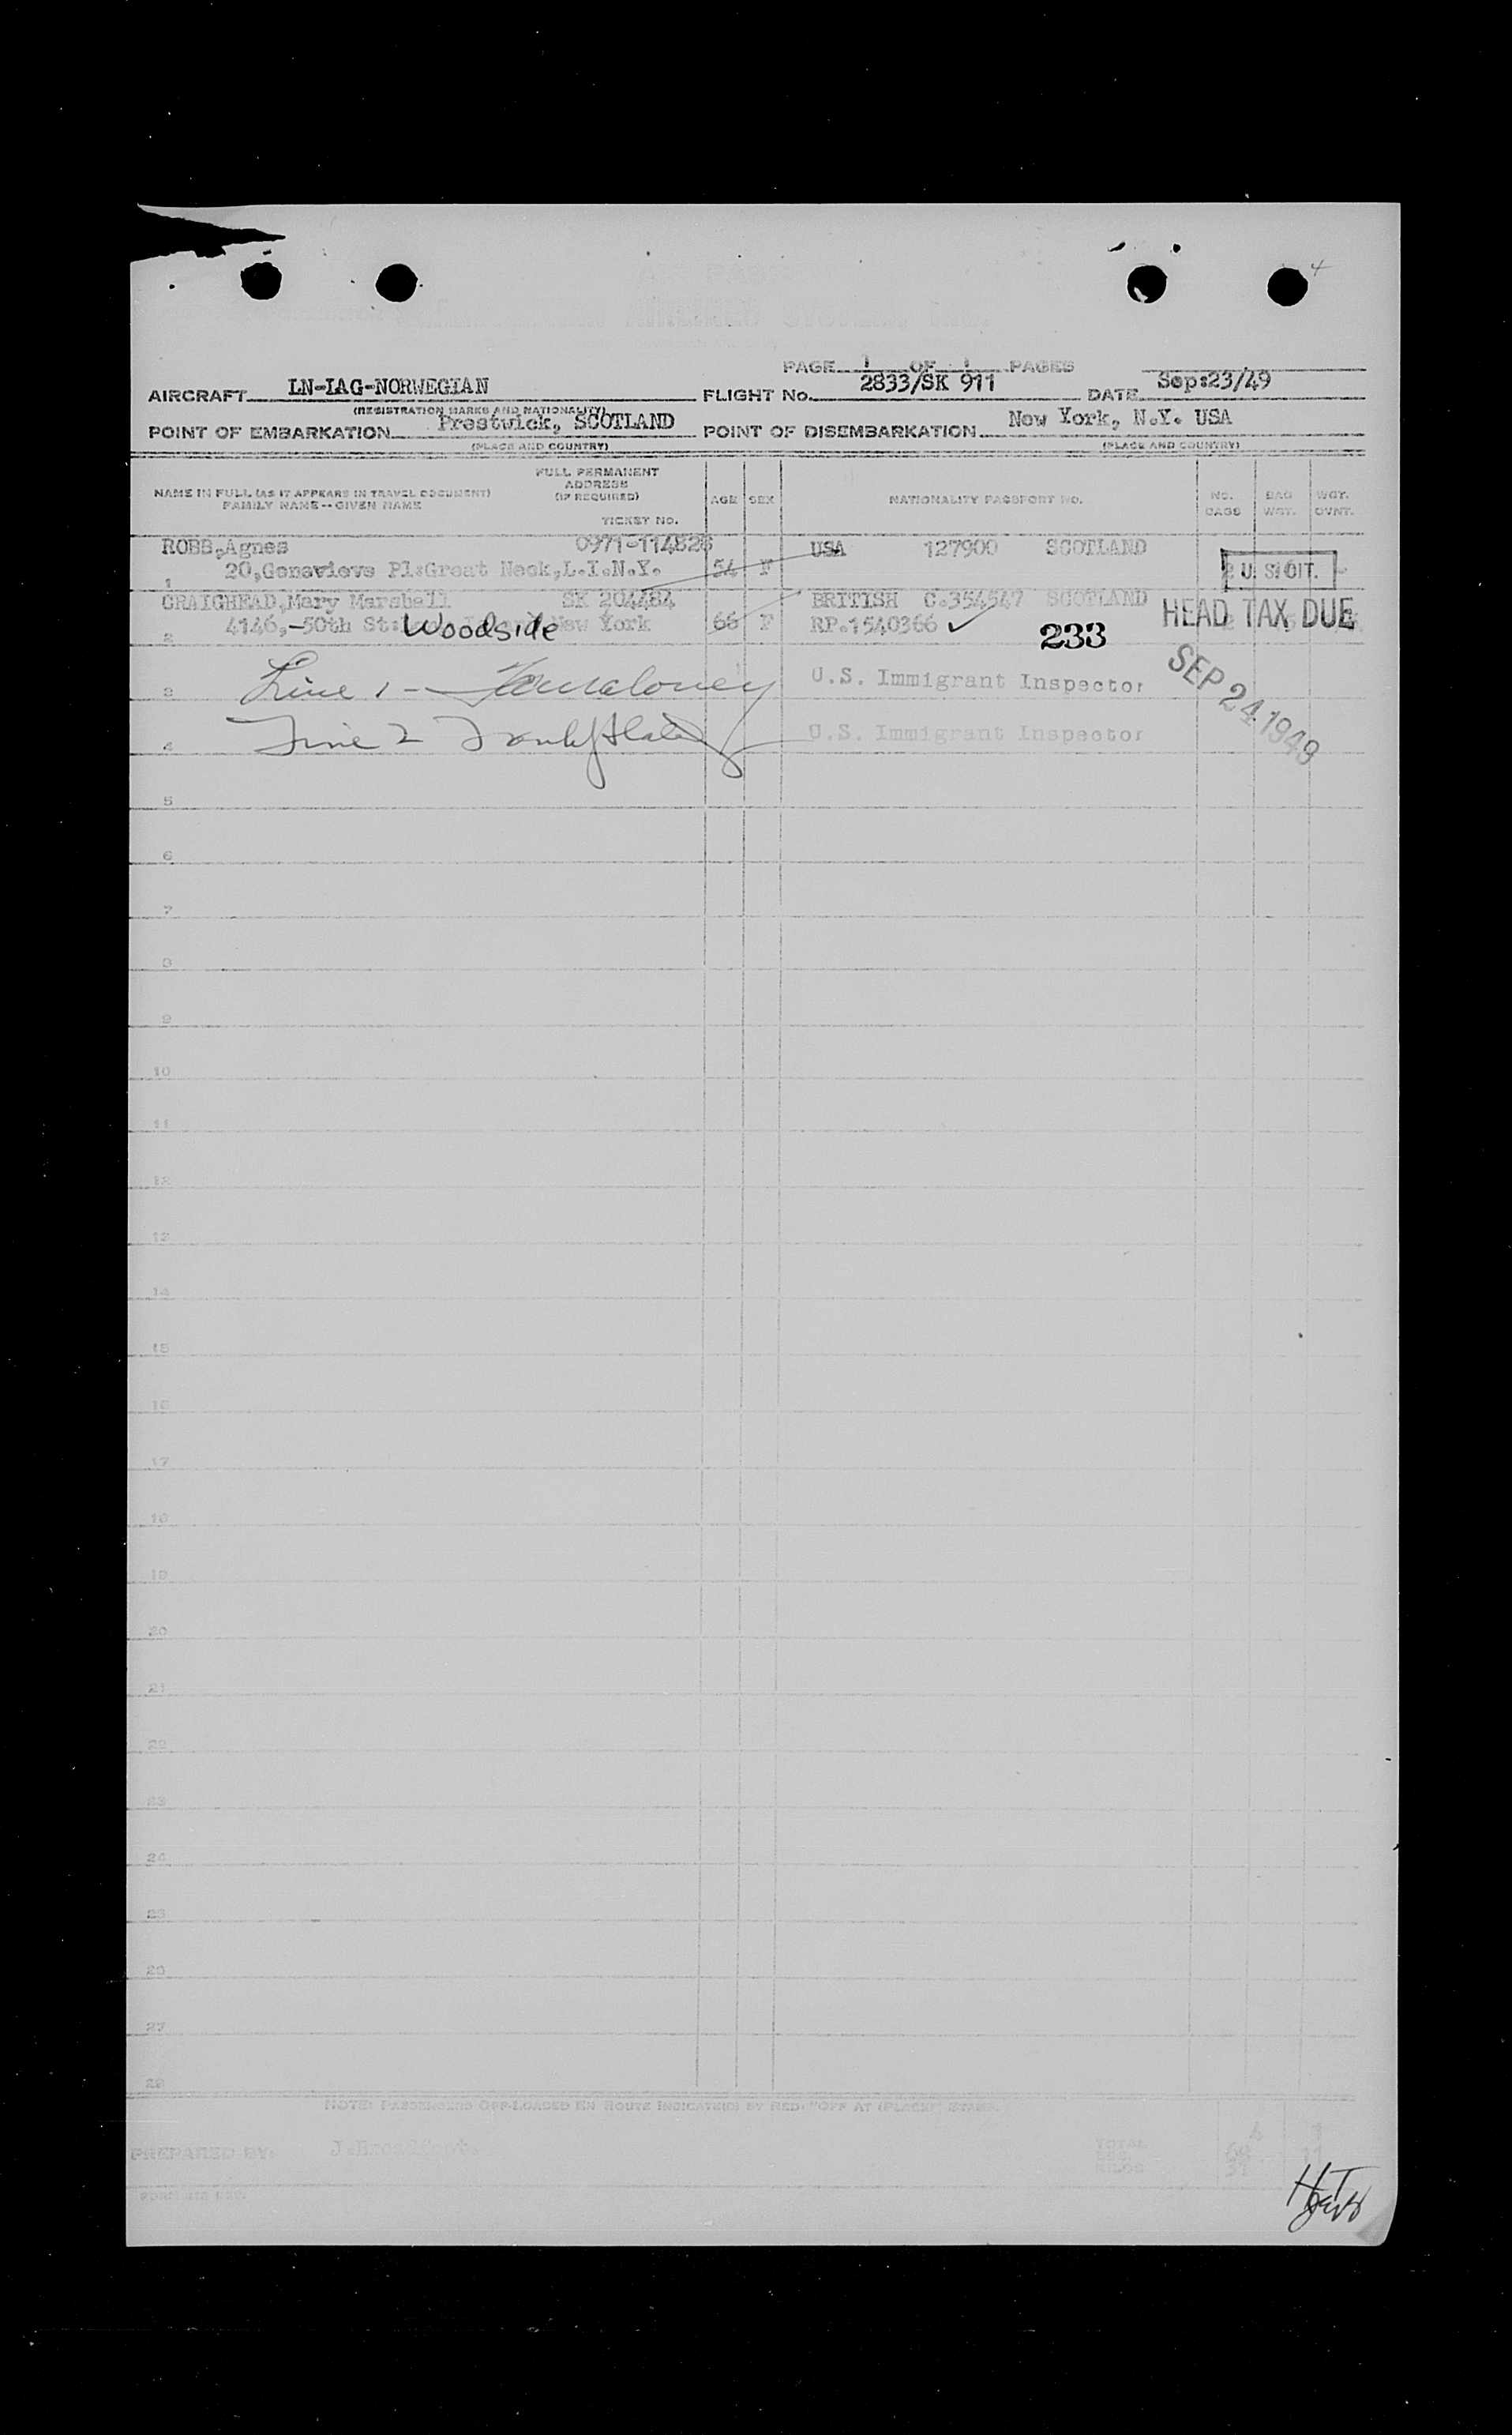 4
PAGE 1 OF 1 PAGES
AIRCRAFT LN-IAG-NORWEGIAN FLIGHT No. 2833/SK 911 DATE Sep:23/49
(REGISTRATION MARKS AND NATIONALITY)
POINT OF EMBARKATION Prestwick, SCOTLAND POINT OF DISEMBARKATION New York, N.Y. USA
(PLACE AND COUNTRY) (PLACE AND COUNTRY)
NAME IN FULL (AS IT APPEARS IN TRAVEL DOCUMENT) FAMILY NAME -- GIVEN NAME FULL PERMANENT ADDRESS (IF REQUIRED) TICKET NO. AGE SEX NATIONALITY PASSPORT NO. NO. BAGS BAG WGT. WGT. OVNT.
ROBB,Agnes 0971-114826 USA 127900 SCOTLAND
1 20,Genevieve Pl:Great Neck,L.I.N.Y. 54 F U. S. CIT.
CRAIGHEAD,Mary Marshall SK 204484 BRITISH C.354547 SCOTLAND HEAD TAX DUE
2 4146,-50th St: Woodside New York 66 F RP.1540366 ✓ 233
3 Line 1 - U.S. Immigrant Inspector
SEP 24 1949
4 Line 2 U.S. Immigrant Inspector
5
6
7
8
9
10
11
12
13
14
15
16
17
18
19
20
21
22
23
24
25
26
27
28
NOTE: PASSENGERS OFF-LOADED EN ROUTE INDICATED BY RED: "OFF AT (PLACE)" STAMP.
PREPARED BY: TOTAL